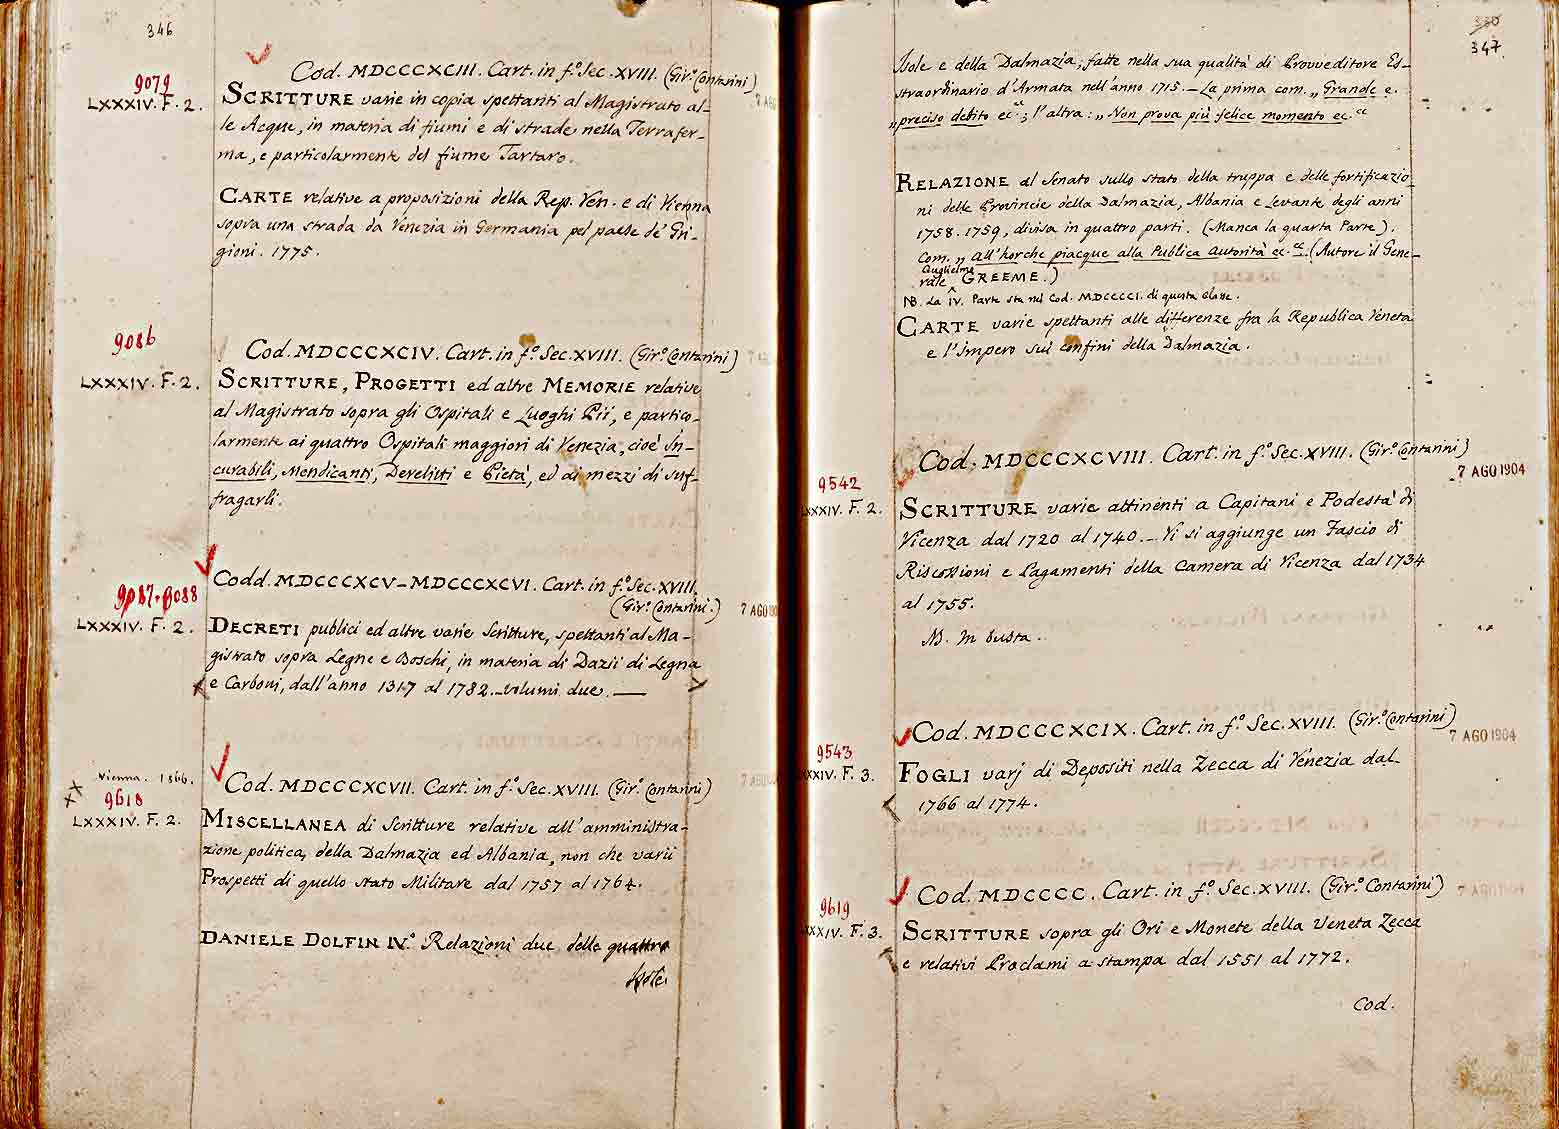 346
9079
LXXXIV. F. 2.
Cod. MDCCCXCIII. Cart. in f.º Sec. XVIII. (Gir.º Contarini)
7 AGO
SCRITTURE varie in copia spettanti al Magistrato al-
le Acque, in materia di fiumi e di strade nella Terrafer-
ma, e particolarmente del fiume Tartaro.
CARTE relative a proposizioni della Rep. Ven. e di Vienna
sopra una strada da Venezia in Germania pel paese de' Gri-
gioni. 1775.
9086
LXXXIV. F. 2.
Cod. MDCCCXCIV. Cart. in f.º Sec. XVIII. (Gir.º Contarini)
SCRITTURE, PROGETTI ed altre MEMORIE relative
al Magistrato sopra gli Ospitali e Luoghi Pii, e partico-
larmente ai quattro Ospitali maggiori di Venezia, cioè In-
curabili, Mendicanti, Derelitti e Pietà, ed ai mezzi di suf-
fragarli.
9087-9088
LXXXIV. F. 2.
Codd. MDCCCXCV-MDCCCXCVI. Cart. in f.º Sec. XVIII.
(Gir.º Contarini.)
7 AGO 190
DECRETI publici ed altre varie Scritture, spettanti al Ma-
gistrato sopra Legne e Boschi, in materia di Dazii di Legna
e Carboni, dall'anno 1317 al 1782. - volumi due. —
Vienna. 1866.
9618
LXXXIV. F. 2.
Cod. MDCCCXCVII. Cart. in f.º Sec. XVIII. (Gir.º Contarini)
7 AGO
MISCELLANEA di Scritture relative all'amministra-
zione politica, della Dalmazia ed Albania, non che varii
Prospetti di quello stato Militare dal 1757 al 1764.
DANIELE DOLFIN IV.º Relazioni due delle quattro
Isole
330
347
Isole e della Dalmazia, fatte nella sua qualità di Provveditore Es-
straordinario d'Armata nell'anno 1715. - La prima com. „ Grande e.
„ preciso debito ec. “; l'altra: „ Non prova più felice momento ec. “
RELAZIONE al Senato sullo stato della truppa e delle fortificazio-
ni delle Provincie della Dalmazia, Albania e Levante degli anni
1758. 1759, divisa in quattro parti. (Manca la quarta Parte).
com. „ All'horche piacque alla Publica Autorità ec. “. (Autore il Gene-
Auguglielmo
rale ^ GREEME.)
NB. La IV. Parte sta nel Cod. MDCCCCI. di questa Classe.
CARTE varie spettanti alle differenze fra la Republica Veneta
e l'Impero sui confini della Dalmazia.
9542
LXXXIV. F. 2.
Cod. MDCCCXCVIII. Cart. in f.º Sec. XVIII. (Gir.º Contarini)
7 AGO 1904
SCRITTURE varie attinenti a Capitani e Podestà di
Vicenza dal 1720 al 1740. - Vi si aggiunge un Fascio di
Riscossioni e Pagamenti della Camera di Vicenza dal 1734
al 1755.
NB. In busta.
9543
LXXXIV. F. 3.
Cod. MDCCCXCIX. Cart. in f.º Sec. XVIII. (Gir.º Contarini)
7 AGO 1904
FOGLI varj di Depositi nella Zecca di Venezia dal
1766 al 1774.
9619
LXXXIV. F. 3.
Cod. MDCCCC. Cart. in f.º Sec. XVIII. (Gir.º Contarini)
SCRITTURE sopra gli Ori e Monete della Veneta Zecca
e relativi Proclami a stampa dal 1551 al 1772.
Cod.